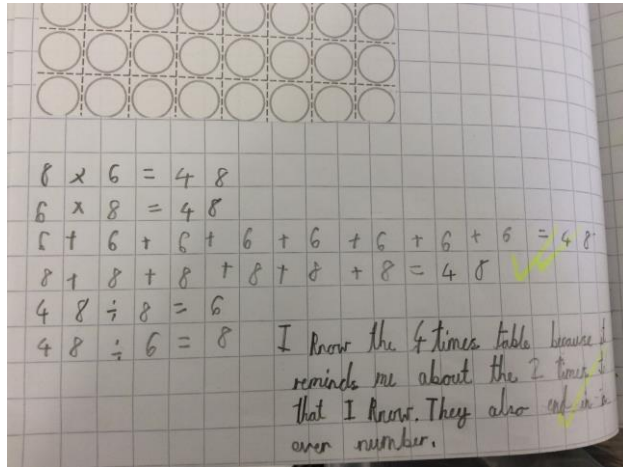 8 x 6 = 48
6 x 8 = 48
6 + 6 + 6 + 6 + 6 + 6 + 6 + 6 = 48
8 + 8 + 8 + 8 + 8 + 8 = 48
48 ÷ 8 = 6
48 ÷ 6 = 8
I know the 4 times table because it
reminds me about the 2 times
that I know. They also end in
even number.